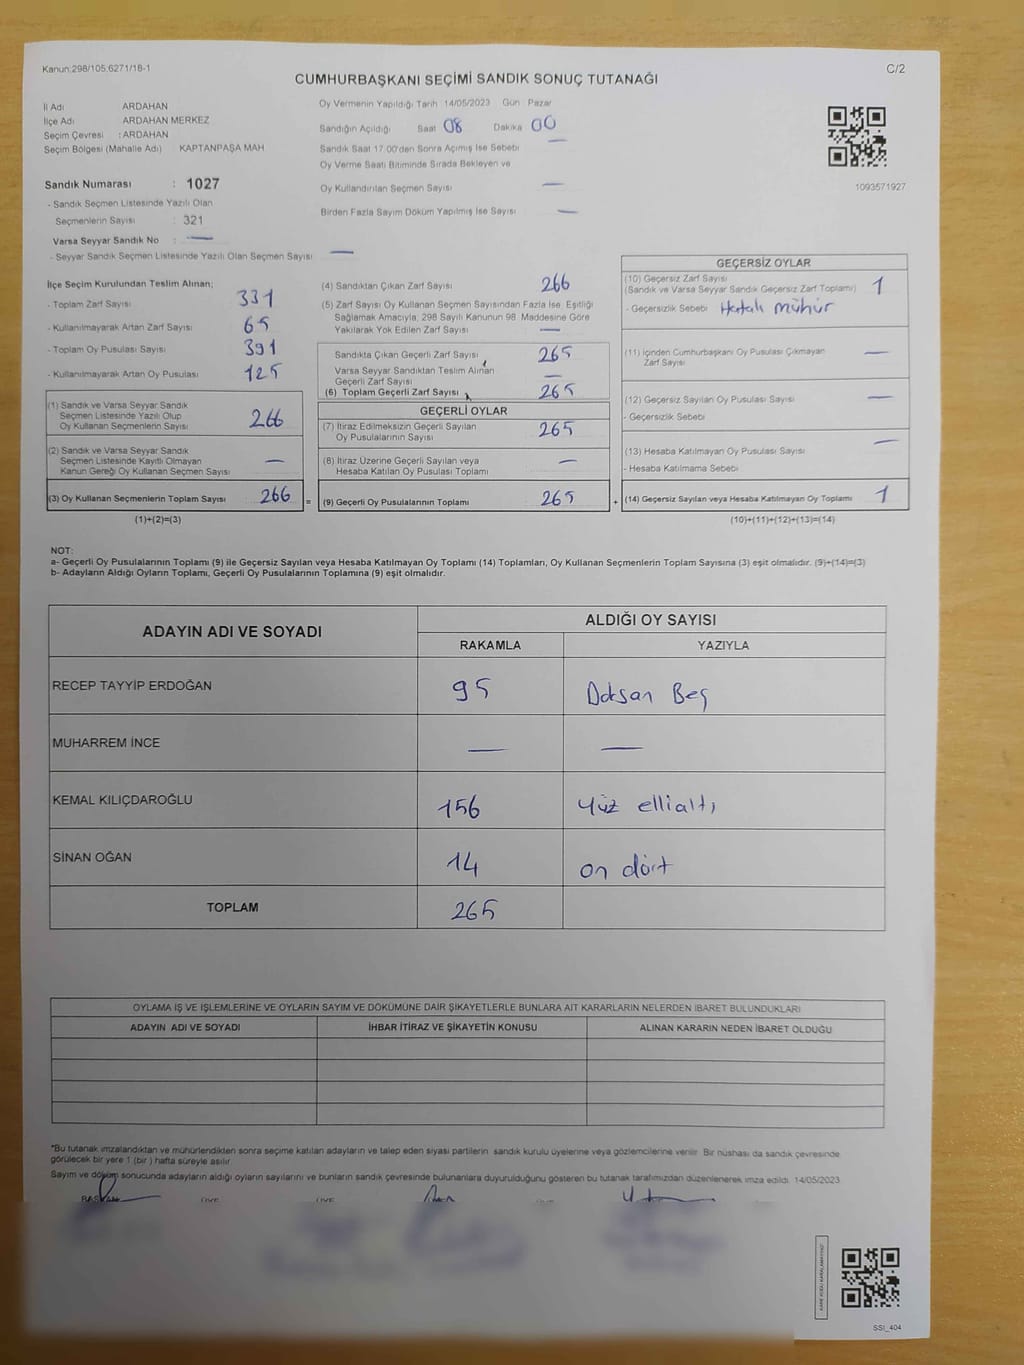 Kanun:298/105,6271/18-1
C/2
CUMHURBAŞKANI SEÇİMİ SANDIK SONUÇ TUTANAĞI
İl Adı ARDAHAN
İlçe Adı ARDAHAN MERKEZ
Seçim Çevresi : ARDAHAN
Seçim Bölgesi (Mahalle Adı) KAPTANPAŞA MAH
Sandık Numarası : 1027
- Sandık Seçmen Listesinde Yazılı Olan
Seçmenlerin Sayısı : 321
Varsa Seyyar Sandık No : —
- Seyyar Sandık Seçmen Listesinde Yazılı Olan Seçmen Sayısı —
Oy Vermenin Yapıldığı Tarih 14/05/2023 Gün Pazar
Sandığın Açıldığı Saat 08 Dakika 00
Sandık Saat 17.00'den Sonra Açımış İse Sebebi —
Oy Verme Saati Bitiminde Sırada Bekleyen ve
Oy Kullandırılan Seçmen Sayısı —
Birden Fazla Sayım Döküm Yapılmış İse Sayısı —
1093571927
İlçe Seçim Kurulundan Teslim Alınan;
- Toplam Zarf Sayısı 331
- Kullanılmayarak Artan Zarf Sayısı 65
- Toplam Oy Pusulası Sayısı 391
- Kullanılmayarak Artan Oy Pusulası 125
(1) Sandık ve Varsa Seyyar Sandık
Seçmen Listesinde Yazılı Olup
Oy Kullanan Seçmenlerin Sayısı 266
(2) Sandık ve Varsa Seyyar Sandık
Seçmen Listesinde Kayıtlı Olmayan
Kanun Gereği Oy Kullanan Seçmen Sayısı —
(3) Oy Kullanan Seçmenlerin Toplam Sayısı 266
(1)+(2)=(3)
=
(4) Sandıktan Çıkan Zarf Sayısı 266
(5) Zarf Sayısı Oy Kullanan Seçmen Sayısından Fazla İse, Eşitliği
Sağlamak Amacıyla, 298 Sayılı Kanunun 98. Maddesine Göre
Yakılarak Yok Edilen Zarf Sayısı —
Sandıkta Çıkan Geçerli Zarf Sayısı 265
Varsa Seyyar Sandıktan Teslim Alınan
Geçerli Zarf Sayısı —
(6) Toplam Geçerli Zarf Sayısı 265
GEÇERLİ OYLAR
(7) İtiraz Edilmeksizin Geçerli Sayılan
Oy Pusulalarının Sayısı 265
(8) İtiraz Üzerine Geçerli Sayılan veya
Hesaba Katılan Oy Pusulası Toplamı —
(9) Geçerli Oy Pusulalarının Toplamı 265
+
GEÇERSİZ OYLAR
(10) Geçersiz Zarf Sayısı
(Sandık ve Varsa Seyyar Sandık Geçersiz Zarf Toplamı) 1
- Geçersizlik Sebebi Hatalı mühür
(11) İçinden Cumhurbaşkanı Oy Pusulası Çıkmayan
Zarf Sayısı —
(12) Geçersiz Sayılan Oy Pusulası Sayısı —
- Geçersizlik Sebebi
(13) Hesaba Katılmayan Oy Pusulası Sayısı —
- Hesaba Katılmama Sebebi
(14) Geçersiz Sayılan veya Hesaba Katılmayan Oy Toplamı 1
(10)+(11)+(12)+(13)=(14)
NOT:
a- Geçerli Oy Pusulalarının Toplamı (9) ile Geçersiz Sayılan veya Hesaba Katılmayan Oy Toplamı (14) Toplamları, Oy Kullanan Seçmenlerin Toplam Sayısına (3) eşit olmalıdır. (9)+(14)=(3)
b- Adayların Aldığı Oyların Toplamı, Geçerli Oy Pusulalarının Toplamına (9) eşit olmalıdır.
ADAYIN ADI VE SOYADI
ALDIĞI OY SAYISI
RAKAMLA YAZIYLA
RECEP TAYYİP ERDOĞAN 95 Doksan Beş
MUHARREM İNCE — —
KEMAL KILIÇDAROĞLU 156 Yüz ellialtı
SİNAN OĞAN 14 on dört
TOPLAM 265
OYLAMA İŞ VE İŞLEMLERİNE VE OYLARIN SAYIM VE DÖKÜMÜNE DAİR ŞİKAYETLERLE BUNLARA AİT KARARLARIN NELERDEN İBARET BULUNDUKLARI
ADAYIN ADI VE SOYADI İHBAR İTİRAZ VE ŞİKAYETİN KONUSU ALINAN KARARIN NEDEN İBARET OLDUĞU
*Bu tutanak imzalandıktan ve mühürlendikten sonra seçime katılan adayların ve talep eden siyasi partilerin sandık kurulu üyelerine veya gözlemcilerine verilir. Bir nüshası da sandık çevresinde
görülecek bir yere 1 (bir) hafta süreyle asılır.
Sayım ve döküm sonucunda adayların aldığı oyların sayılarını ve bunların sandık çevresinde bulunanlara duyurulduğunu gösteren bu tutanak tarafımızdan düzenlenerek imza edildi. 14/05/2023
BAŞKAN ÜYE ÜYE
SSI_404